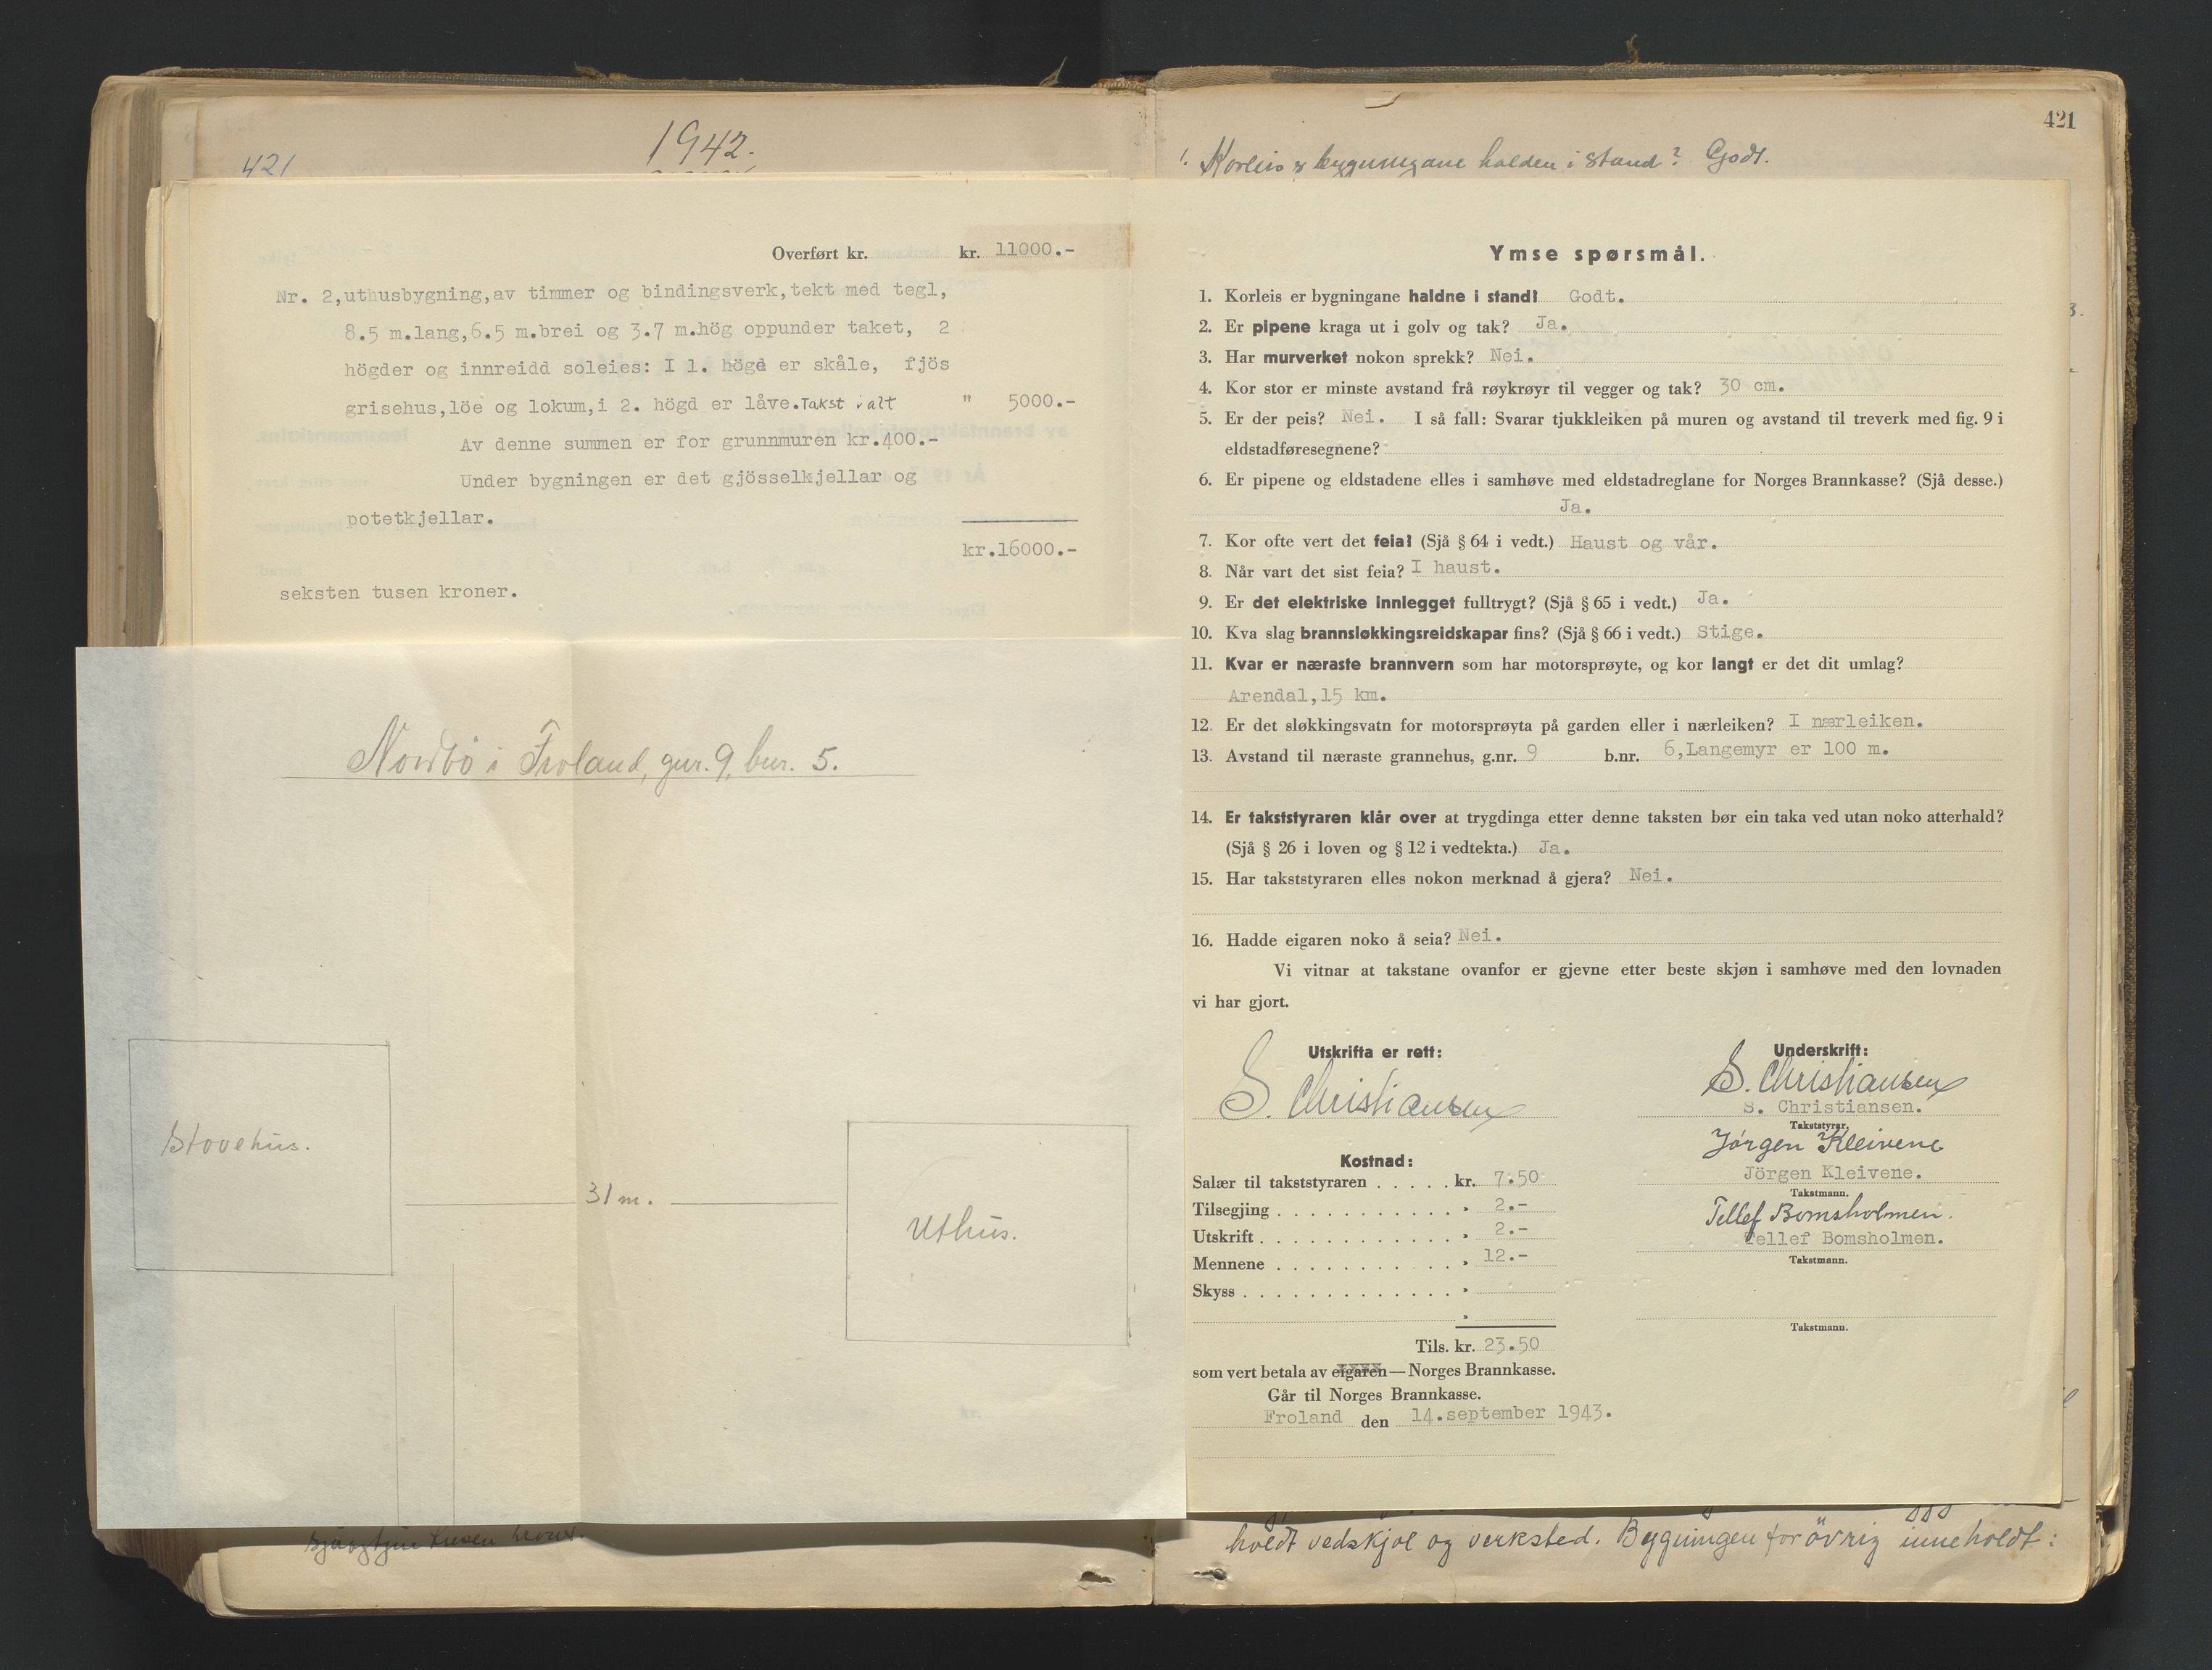 421
1942.
Overført kr. kr. 11000.-
Nr. 2,uthusbygning,av timmer og bindingsverk,tekt med tegl,
8.5 m.lang,6.5 m.brei og 3.7 m.hög oppunder taket, 2
högder og innreidd soleies: I 1. högd er skåle, fjös
grisehus,löe og lokum,i 2. högd er låve.Takst ialt " 5000.-
Av denne summen er for grunnmuren kr.400.-
Under bygningen er det gjösselkjellar og
potetkjellar.
kr.16000.-
seksten tusen kroner.
Nordbö i Froland, gnr. 9, bnr. 5.
Stovehus.
31 m.
Uthus.
tusen kroner.
421
1. Korleis er bygningane halden i stand? Godt.
Ymse spørsmål.
1. Korleis er bygningane haldne i stand? Godt.
2. Er pipene kraga ut i golv og tak? Ja.
3. Har murverket nokon sprekk? Nei.
4. Kor stor er minste avstand frå røykrøyr til vegger og tak? 30 cm.
5. Er der peis? Nei. I så fall: Svarar tjukkleiken på muren og avstand til treverk med fig. 9 i
eldstadføresegnene?
6. Er pipene og eldstadene elles i samhøve med eldstadreglane for Norges Brannkasse? (Sjå desse.)
Ja.
7. Kor ofte vert det feia? (Sjå § 64 i vedt.) Haust og vår.
8. Når vart det sist feia? I haust.
9. Er det elektriske innlegget fulltrygt? (Sjå § 65 i vedt.) Ja.
10. Kva slag brannsløkkingsreidskapar fins? (Sjå § 66 i vedt.) Stige.
11. Kvar er næraste brannvern som har motorsprøyte, og kor langt er det dit umlag?
Arendal,15 km.
12. Er det sløkkingsvatn for motorsprøyta på garden eller i nærleiken? I nærleiken.
13. Avstand til næraste grannehus, g.nr. 9 b.nr. 6,Langemyr er 100 m.
14. Er takststyraren klår over at trygdinga etter denne taksten bør ein taka ved utan noko atterhald?
(Sjå § 26 i loven og § 12 i vedtekta.) Ja.
15. Har takststyraren elles nokon merknad å gjera? Nei.
16. Hadde eigaren noko å seia? Nei.
Vi vitnar at takstane ovanfor er gjevne etter beste skjøn i samhøve med den lovnaden
vi har gjort.
Utskrifta er rett:
S. Christiansen
Underskrift:
S. Christiansen
S. Christiansen.
Takststyrar.
Jörgen Kleivene
Jörgen Kleivene.
Takstmann.
Tellef Bomsholmen.
Tellef Bomsholmen.
Takstmann.
Takstmann.
Kostnad:
Salær til takststyraren . . . . . kr. 7.50
Tilsegjing . . . . . . . . . . . » 2.-
Utskrift . . . . . . . . . . . . » 2.-
Mennene . . . . . . . . . . . » 12.-
Skyss . . . . . . . . . . . . . »
»
Tils. kr. 23.50
som vert betala av eigaren — Norges Brannkasse.
Går til Norges Brannkasse.
Froland den 14.september 1943.
holdt vedskjol og verksted. Bygningen for övrig inneholdt: